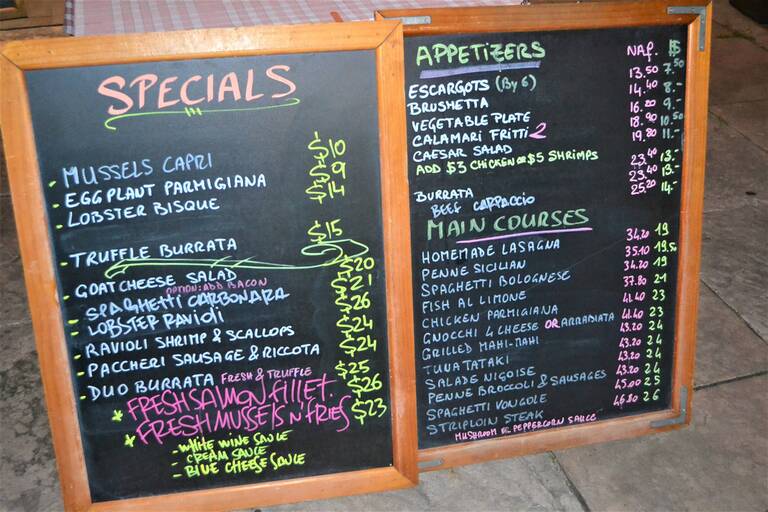 SPECIALS
- MUSSELS CAPRI $10
- EGGPLANT PARMIGIANA $9
- LOBSTER BISQUE $14
- TRUFFLE BURRATA $15
- GOATCHEESE SALAD $20
OPTION: ADD BACON
- SPAGHETTI CARBONARA $21
- LOBSTER RAVIOLI $26
- RAVIOLI SHRIMP & SCALLOPS $24
- PACCHERI SAUSAGE & RICCOTA $24
- DUO BURRATA FRESH & TRUFFLE $25
* FRESH SALMON FILLET. $26
* FRESH MUSSELS N' FRIES $23
- WHITE WINE SAUCE
- CREAM SAUCE
- BLUE CHEESE SAUCE
APPETIZERS NAF. $
ESCARGOTS (By 6) 13.50 7.50
BRUSHETTA 14.40 8.-
VEGETABLE PLATE 16.20 9.-
CALAMARI FRITTI 2 18.90 10.50
CAESAR SALAD 19.80 11.-
ADD $3 CHICKEN OR $5 SHRIMPS 23.40 13.-
BURRATA 23.40 13.-
BEEF CARPACCIO 25.20 14.-
MAIN COURSES
HOMEMADE LASAGNA 34.20 19
PENNE SICILIAN 35.10 19.50
SPAGHETTI BOLOGNESE 34.20 19
FISH AL LIMONE 37.80 21
CHICKEN PARMIGIANA 41.40 23
GNOCCHI 4 CHEESE OR ARRABIATA 41.40 23
GRILLED MAHI-MAHI 43.20 24
TUNA TATAKI 43.20 24
SALADE NIGOISE 43.20 24
PENNE BROCCOLI & SAUSAGES 43.20 24
SPAGHETTI VONGOLE 45.00 25
STRIPLOIN STEAK 46.80 26
MUSHROOM OR PEPPERCORN SAUCE